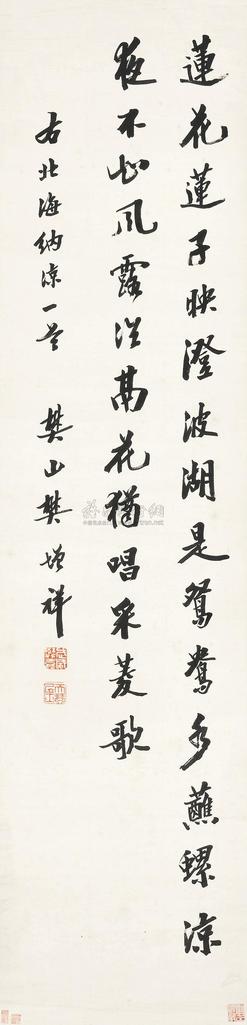 蓮花蓮子映澄波湖是鴛鴦水蘸螺涼
夜不知風露花猶唱采菱歌
右北海納涼一首 樊山樊增祥